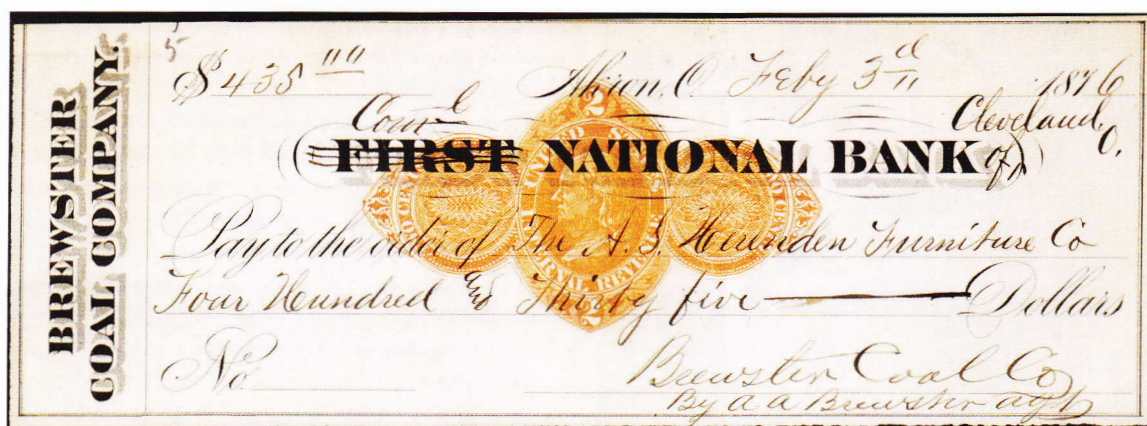 BREWSTER
COAL COMPANY.
5
$435 00 Akron, O. Feby 3d 1876
Coml Cleveland, O.
FIRST NATIONAL BANK of
2
UNITED STATES
INTERNAL REVENUE
2
Pay to the order of The A. S. Herenden Furniture Co
Four Hundred and Thirty five Dollars
No.
Brewster Coal Co
By A A Brewster agt